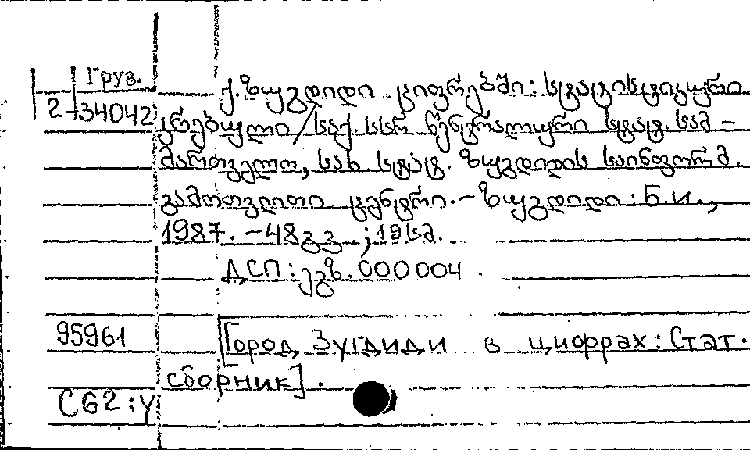 Груз.
2-34042
ქ. ზუგდიდი ციფრებში: სტატისტიკური
კრებული / საქ. სსრ ცენტრალური სტატ. სამ-
მართველო, სახ. სტატ. ზუგდიდის საინფორმ.
გამოთვლითი ცენტრი. - ზუგდიდი: Б.И.,
1987. - 48 გვ. ; 19 სმ.
ДСП: ეგზ. 000004
95961
[Город Зугдиди в цифрах: Стат.
сборник].
С62:У